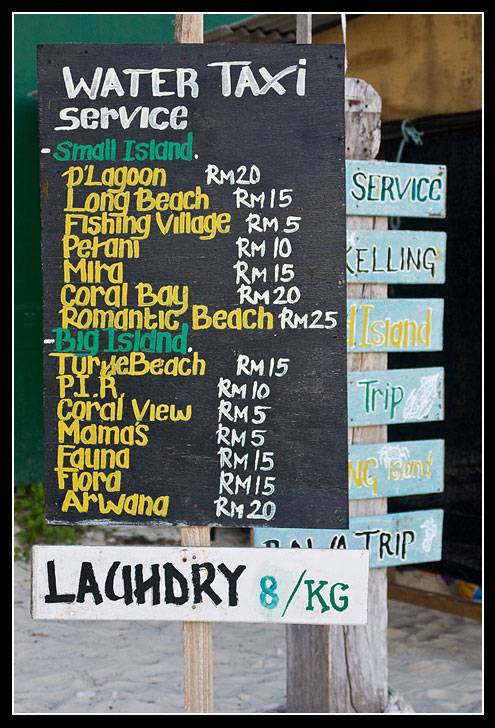 WATER TAXi
service
- Small Island.
P'Lagoon RM20
Long Beach RM15
Fishing Village RM 5
Petani RM 10
Mira RM 15
Coral Bay RM20
Romantic Beach RM25
- Big Island.
TurtleBeach RM15
P.I.R. RM10
Coral View RM 5
Mamas RM 5
Fauna RM15
Flora RM15
Arwana RM20
LAUNDRY 8/KG
SERVICE
KELLING
Island
Trip
NG island
TRIP